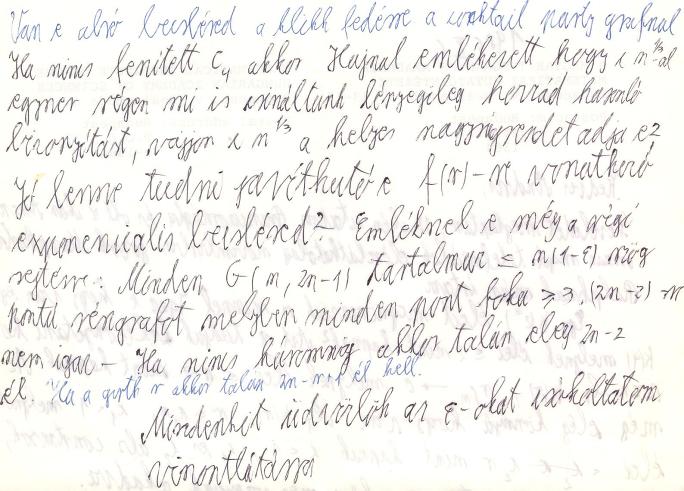 Van e alsó becslésed a klikk fedésre a cocktail party grafnal
Ha nincs feszitett C4 akkor Hajnal emlékezett hogy c n^1/3-al
egyszer régen mi is csináltunk lényegileg hozzád hasonló
bizonyitást, vajjon c n^1/3 a helyes nagyságrendet adja ez
Jó lenne tudni javítható e f(r)-re vonatkozó
exponencialis becslésed? Emléksel e még a régi
sejtésre: Minden G(n, 2n-1) tartalmaz ≤ n(1-ε) szög
pontú reszgrafot melyben minden pont foka ≥ 3. (2n-2)-re
nem igaz - Ha nincs háromszög akkor talán eleg 2n-2
él. Ha a girth r akkor talán 2n-r+1 él kell.
Mindenkit üdvözlök az ε-okat csókoltatom
viszontlátásra